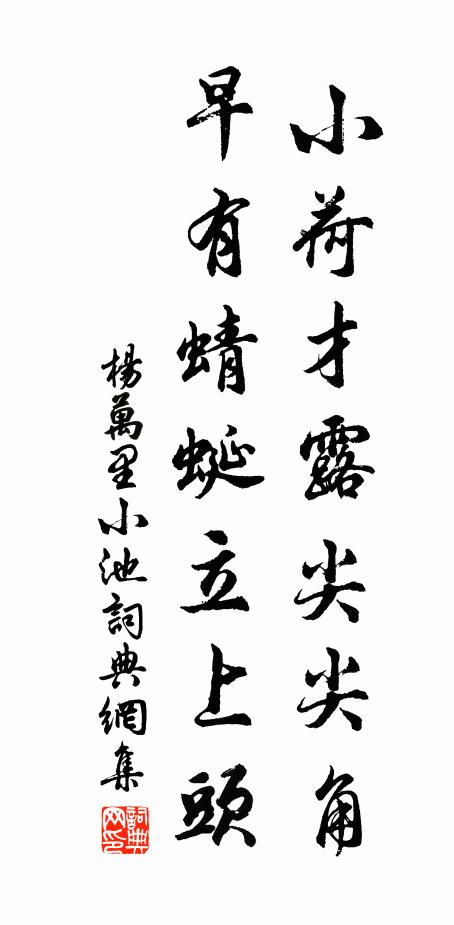 小荷才露尖尖角
早有蜻蜓立上頭
楊萬里小池詞典網集
詞典网印